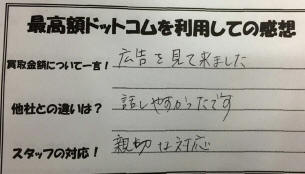 最高額ドットコムを利用しての感想
買取金額について一言！ 広告を見て来ました
他社との違いは？ 話しやすかったです
スタッフの対応！ 親切な対応